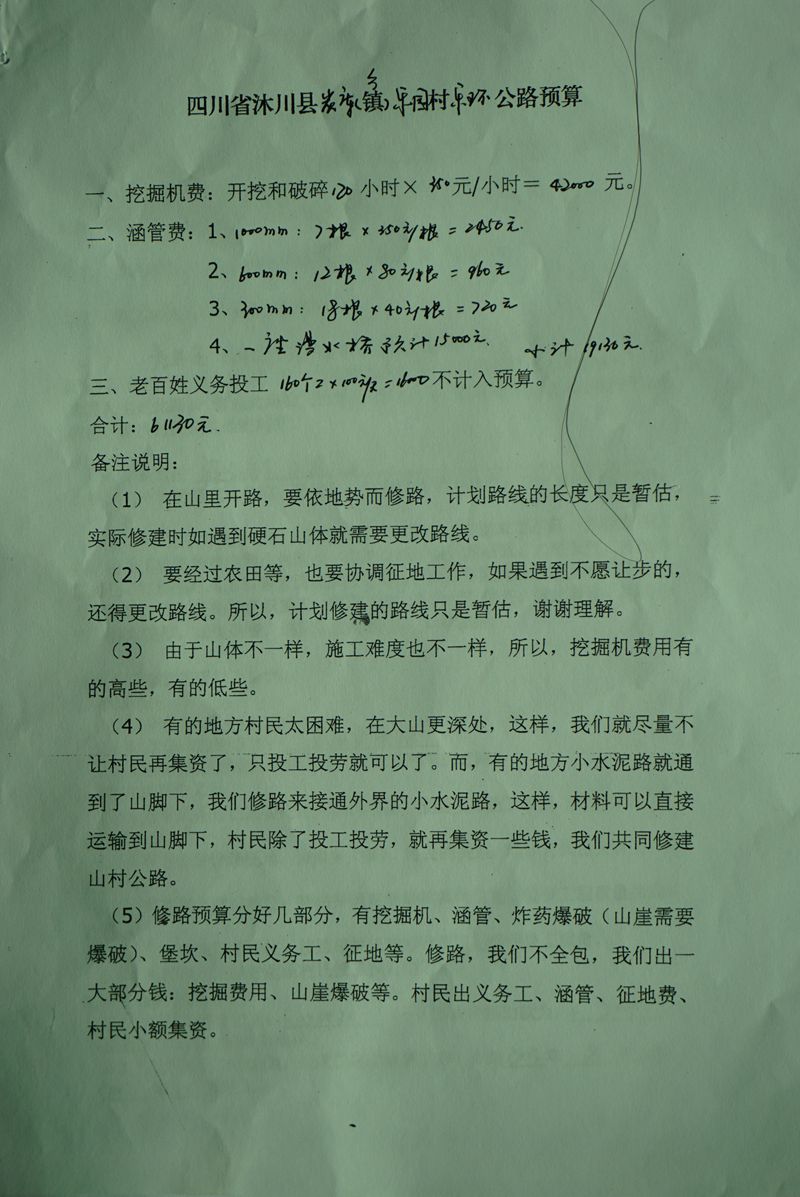 乡
四川省沐川县炭库(镇)草园村草坪公路预算
一、挖掘机费：开挖和破碎120小时×350元/小时＝42000元。
二、涵管费：1、1000mm：7根×350元/根=2450元.
2、600mm：12根×80元/根=960元
3、300mm：18根×40元/根=720元
4、一座漫水桥预计15000元. 小计19130元.
三、老百姓义务投工160个工×100元/工=16000不计入预算。
合计：61130元.
备注说明：
（1） 在山里开路，要依地势而修路，计划路线的长度只是暂估，
实际修建时如遇到硬石山体就需要更改路线。
（2） 要经过农田等，也要协调征地工作，如果遇到不愿让步的，
还得更改路线。所以，计划修建的路线只是暂估，谢谢理解。
（3） 由于山体不一样，施工难度也不一样，所以，挖掘机费用有
的高些，有的低些。
（4） 有的地方村民太困难，在大山更深处，这样，我们就尽量不
让村民再集资了，只投工投劳就可以了。而，有的地方小水泥路就通
到了山脚下，我们修路来接通外界的小水泥路，这样，材料可以直接
运输到山脚下，村民除了投工投劳，就再集资一些钱，我们共同修建
山村公路。
（5）修路预算分好几部分，有挖掘机、涵管、炸药爆破（山崖需要
爆破）、堡坎、村民义务工、征地等。修路，我们不全包，我们出一
大部分钱：挖掘费用、山崖爆破等。村民出义务工、涵管、征地费、
村民小额集资。